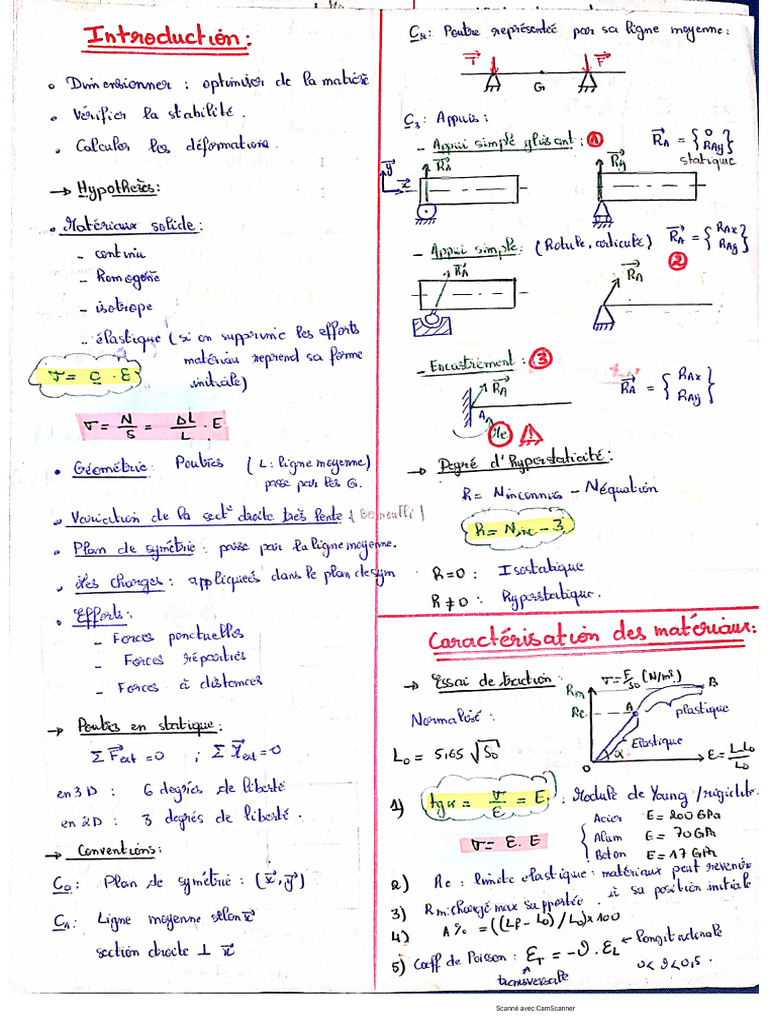 Introduction:
• Dimensionner : optimiser de la matière
• Vérifier la stabilité.
• Calculer les déformations.
→ Hypothèses:
• Matériaux solide:
- continu
- Homogène
- isotrope
- élastique (si on supprime les efforts
matériau reprend sa forme
initiale)
σ = C · ε
σ = N/S = ΔL/L · E
• Géométrie: Poutres (L: ligne moyenne)
passe par les G.
• Variation de la sect° droite très lente (Bernoulli)
• Plan de symétrie : passe par la ligne moyenne.
• Les charges : appliquées dans le plan de sym
• Efforts:
- Forces ponctuelles
- Forces réparties
- Forces à distances
→ Poutres en statique:
Σ F ext = 0 ; Σ M ext = 0
en 3D : 6 degrés de liberté
en 2D : 3 degrés de liberté.
→ Conventions:
C0: Plan de symétrie : (x, y)
C1: Ligne moyenne selon x
section droite ⊥ x
C2: Poutre représentée par sa ligne moyenne:
T F
G
C3: Appuis:
- Appui simple glissant : 1
RA = { 0 RAy }
statique
y x RA Ry
- Appui simple: (Rotule, articulé) RA = { RAx RAy }
2
RA RA
- Encastrement : 3
RA A
RA = { RAx RAy }
→ Degré d'hyperstaticité:
h = N inconnus - N équation
h = N inc - 3
h = 0 : Isostatique
h ≠ 0 : Hyperstatique.
Caractérisation des matériaux:
→ Essai de traction:
Normalisé :
L0 = 5,65 √S0
σ = F/S0 (N/m²)
Rm B
Re A plastique
Elastique
O α ε = L-L0/L0
1) tg α = σ/ε = E : Module de Young / rigidité.
σ = E. ε
Acier E = 200 GPa
Alum E = 70 GPa
Beton E = 17 GPa
2) Re : limite elastique : matériaux peut revenir
à sa position initiale
3) Rm: charge max supportée.
4) A% = ((LF - L0) / L0) x 100
5) Coeff de Poisson : εT = -ν. εL ← Longitudinale
transversale
0 < ν < 0,5.
Scanné avec CamScanner